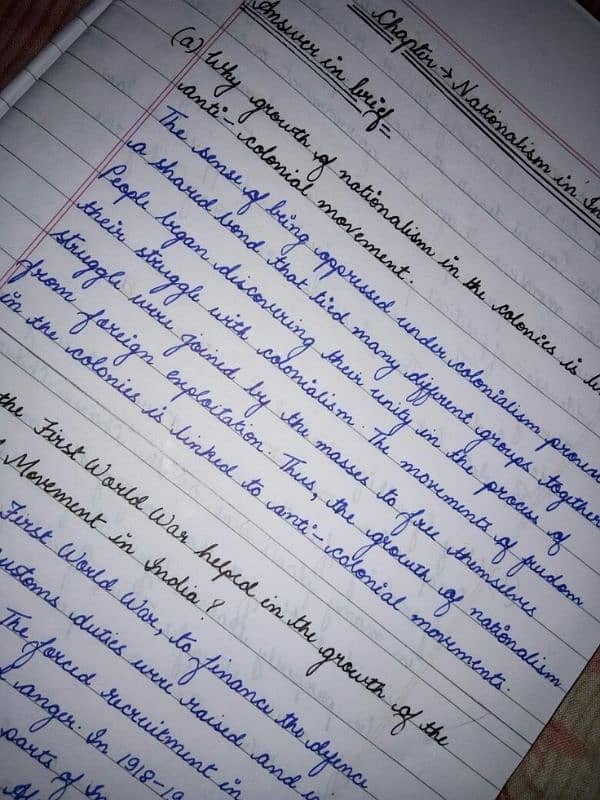 Chapter → Nationalism in In
Answer in brief =
(a) Why growth of nationalism in the colonies is
anti-colonial movement.
The sense of being oppressed under colonialism
a shared bond that tied many different groups together
People began discovering their unity in the process of
their struggle with colonialism. The movements of freedom
struggle were joined by the masses to free themselves
from foreign exploitation. Thus, the growth of nationalism
in the colonies is linked to anti-colonial movements.
the First World War helped in the growth of the
Movement in India?
First World War, to finance the defence
customs duties were raised and
The forced recruitment in
anger. In 1918-19
parts of In